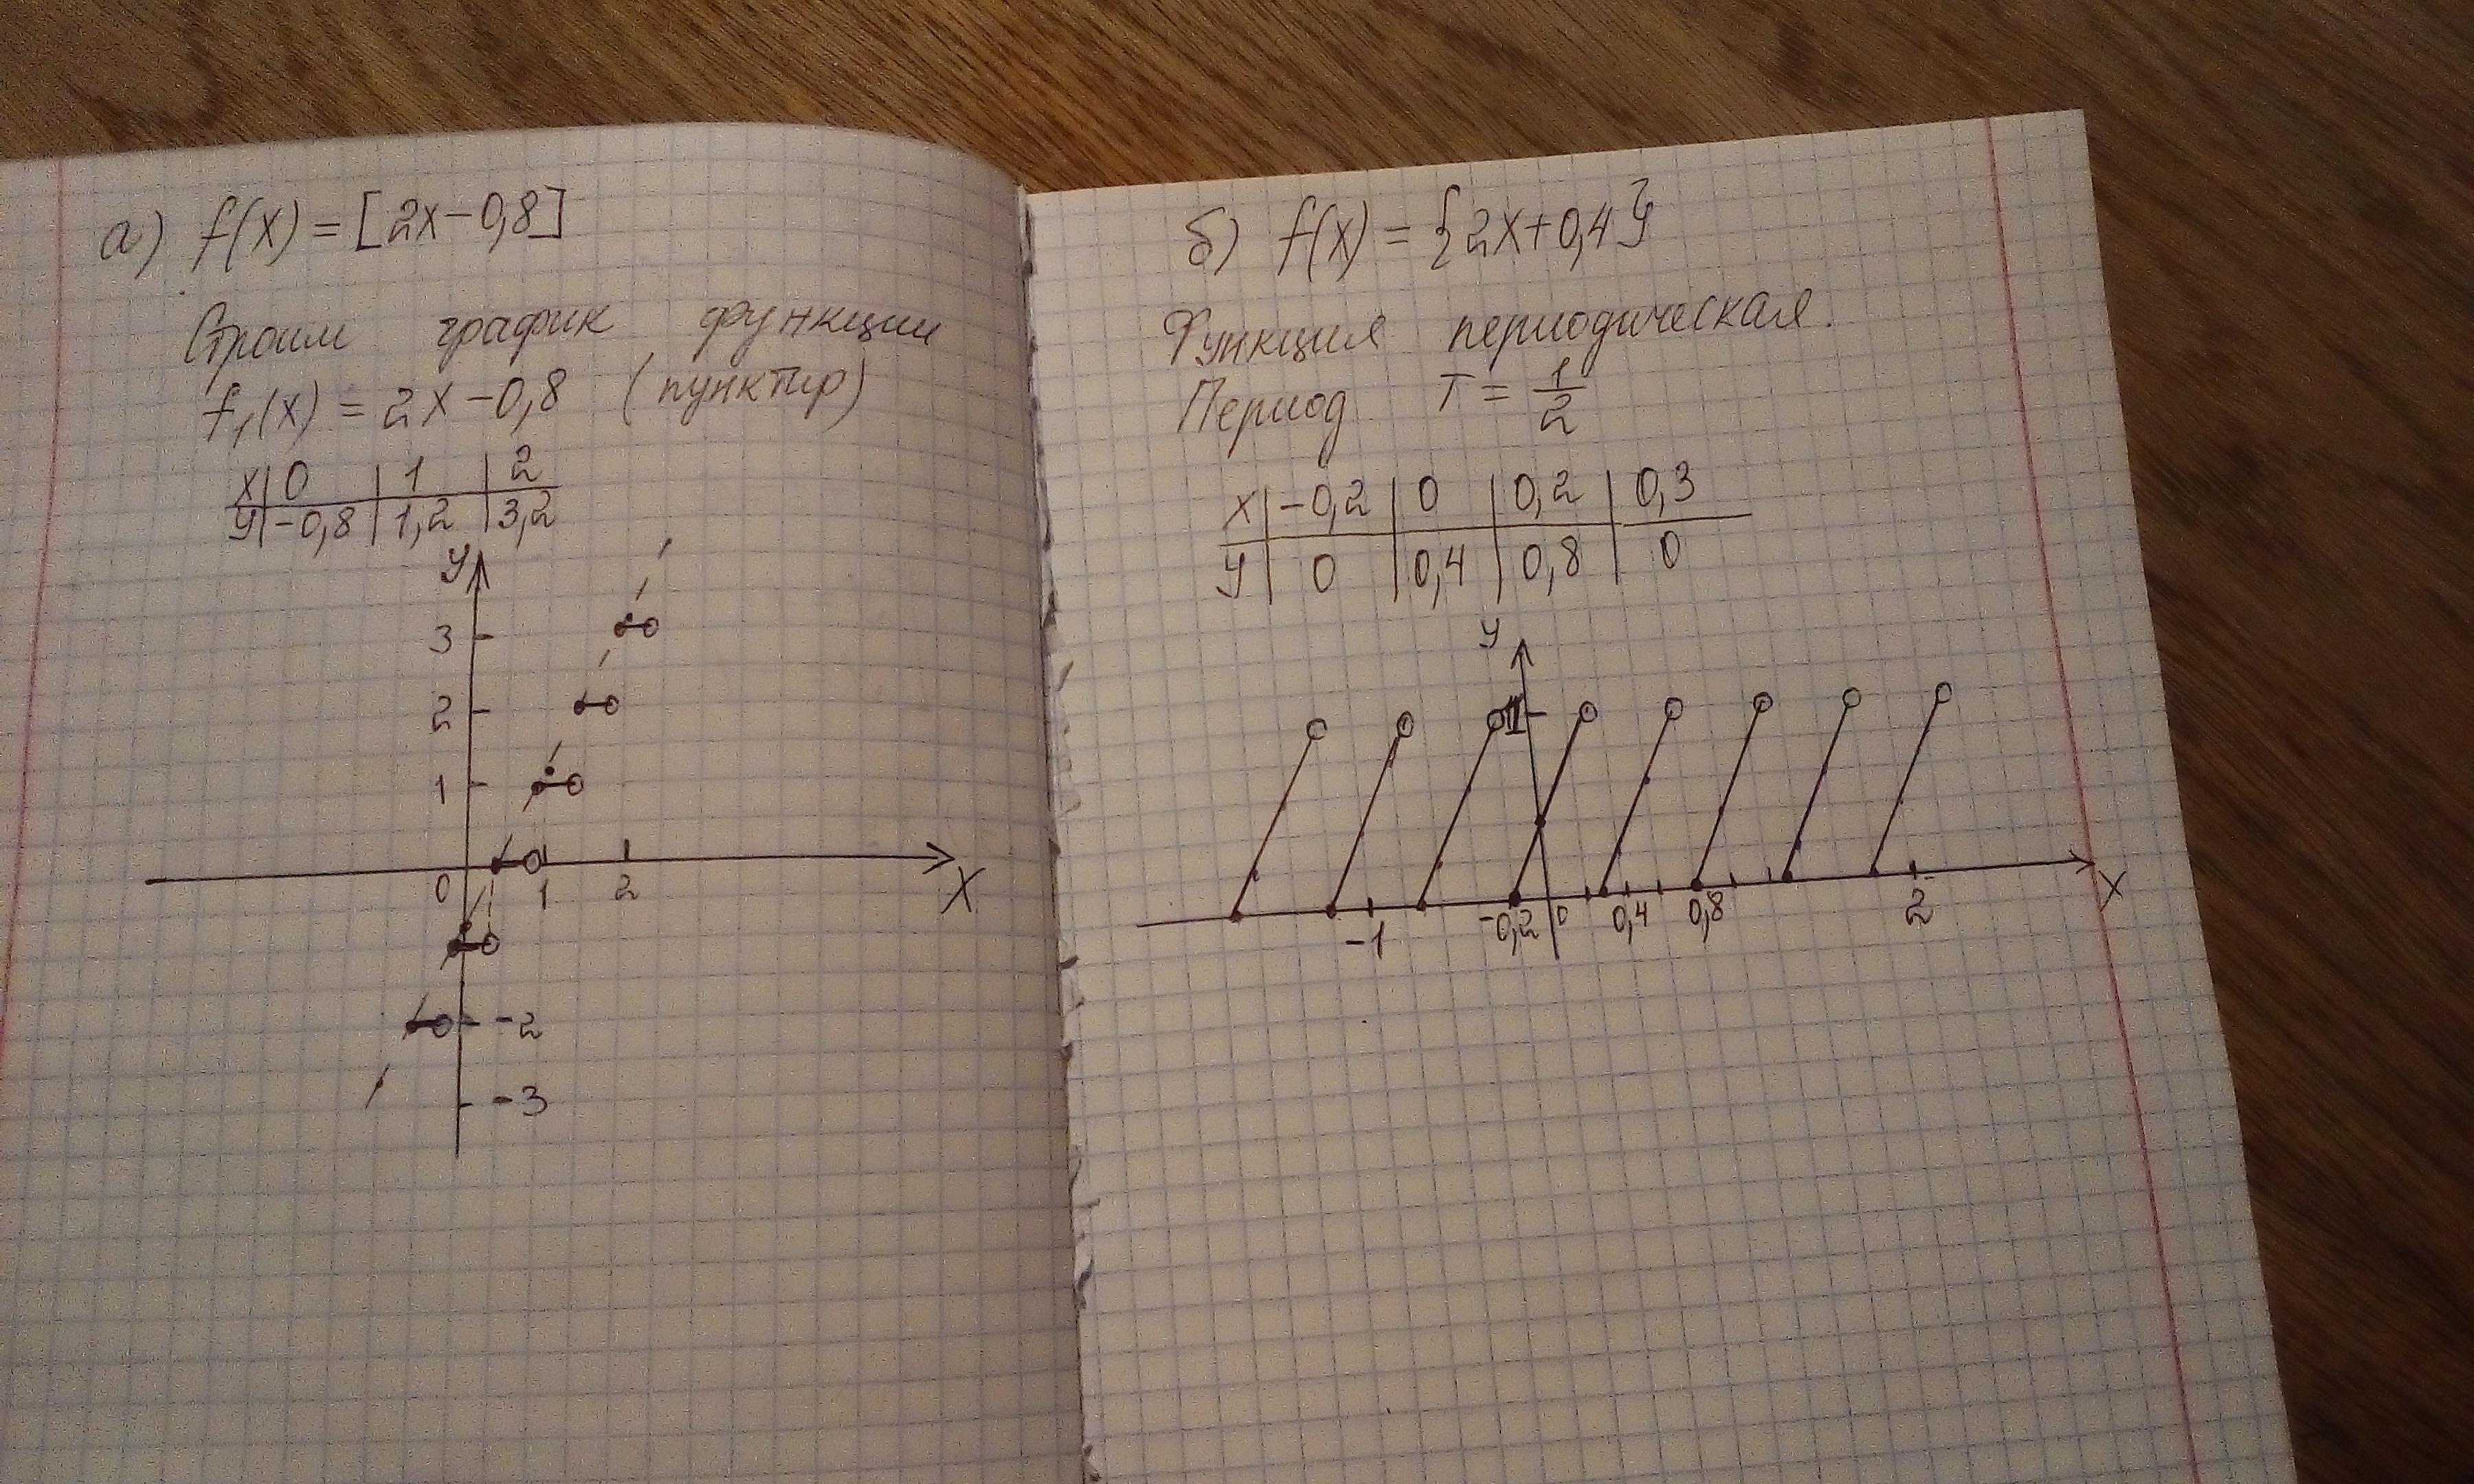 а) f(x) = [2x-0,8]
Строим график функции
f₁(x) = 2x-0,8 (пунктир)
x 0 1 2
y -0,8 1,2 3,2
y
3
2
1
0 1 2 x
-2
-3
б) f(x) = {2x+0,4}
Функция периодическая.
Период T = 1/2
x -0,2 0 0,2 0,3
y 0 0,4 0,8 0
y
1
-1 -0,2 0 0,4 0,8 2 x